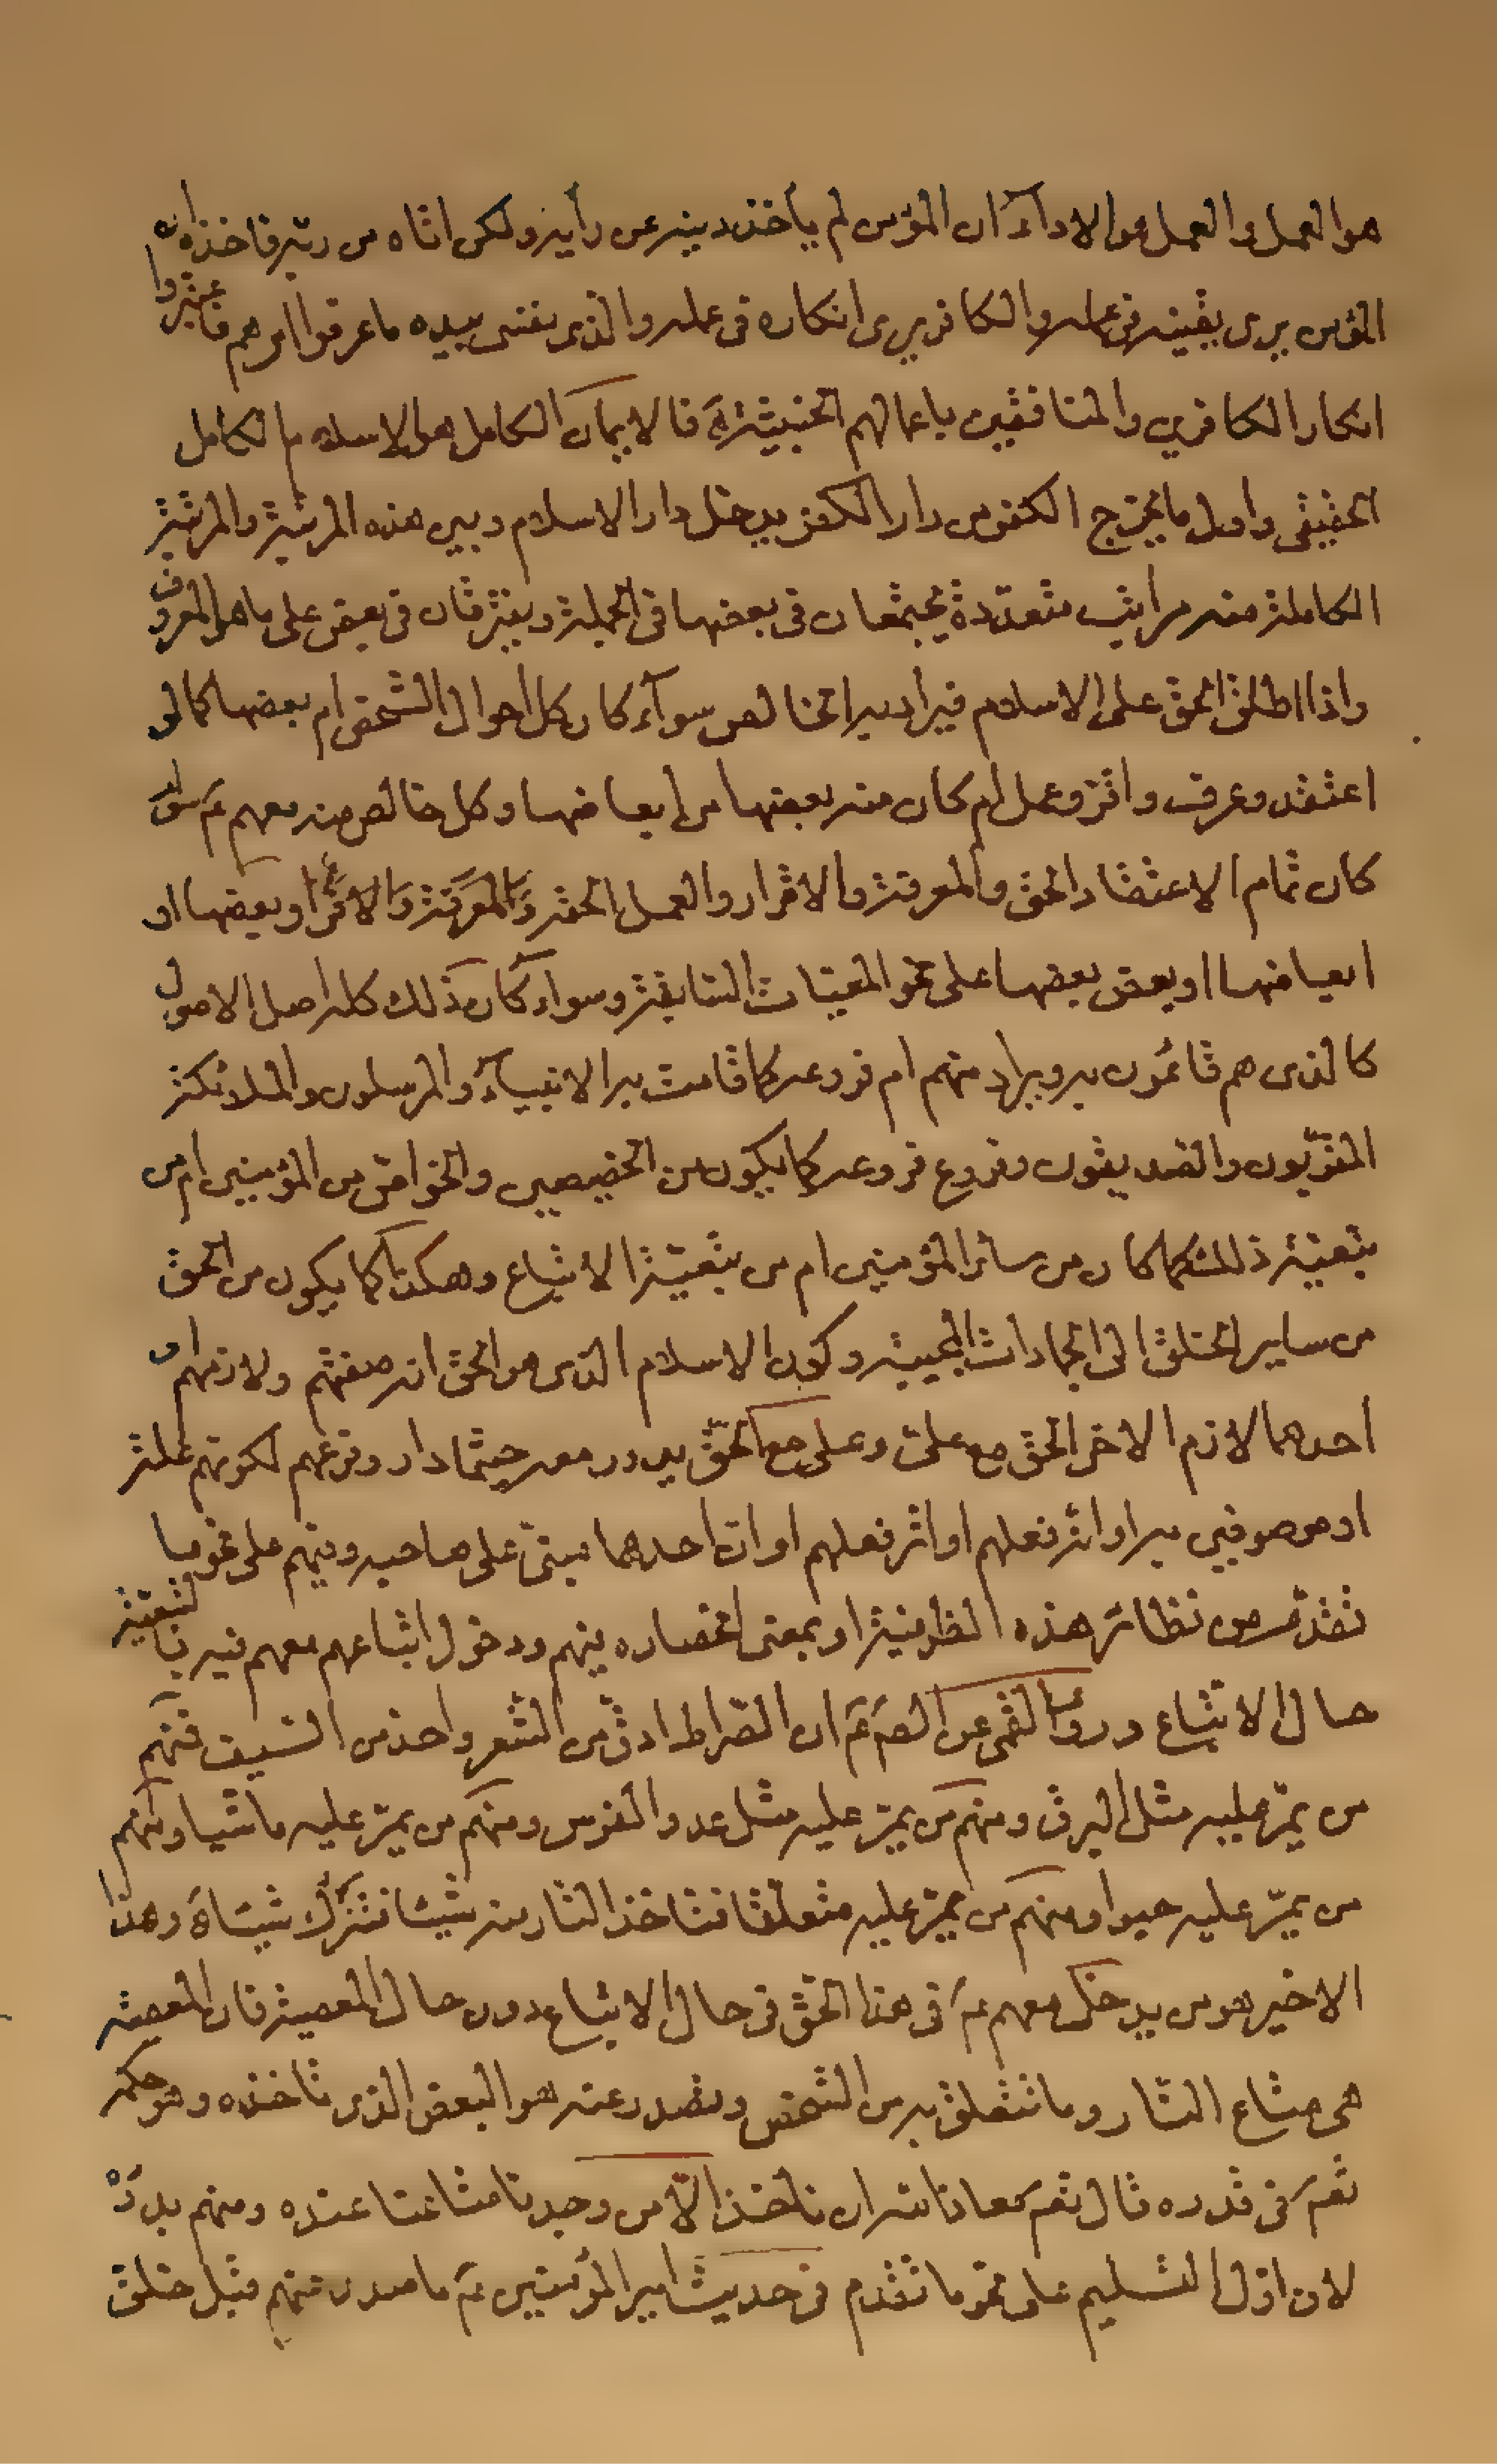 هو العمل والعمل هو الاداء ان المؤمن لم يأخذ دينه عن رأيه ولكن اتاه من ربه فاخذه ان
المؤمن يرى يقينه في عمله والكافر يرى انكاره في عمله والذي نفسي بيده ما عرفوا امرهم فاعتبروا
انكار الكافرين والمنافقين باعمالهم الخبيثة فالايمان الكامل هو الاسلام الكامل
الحقيقي واول ما يخرج الكفر من دار الكفر يدخل دار الاسلام وبين هذه المرتبة والمرتبة
الكاملة منه مراتب متعددة يجتمعان في بعضها في الجملة ويفترقان في بعض على ما هو المعروف
واذا اطلق الحق على الاسلام فيراد به الخالص سواء كان كل احوال الشخص ام بعضها كما لو
اعتقد وعرف واقر وعمل ام كان منه بعضها من ابعاضها وكل خالص منه معهم عم سواء
كان تمام الاعتقاد الحق والمعرفة والاقرار والعمل الحقة والمعرفة والاقرار او بعضها او
ابعاضها او بعض بعضها على نحو المعيات السابقة وسواء كان ذلك كله اصل الاصول
كالذي هم قائمون به ويراد منهم ام فروعه كما قامت به الانبياء والمرسلون والملائكة
المقربون والصديقون وفروع فروعه كما يكون من الخصيصين والخواص من المؤمنين ام من
بتعية ذلك كما كان من سائر المؤمنين ام من بتعية الاتباع وهكذا كما يكون من الحق
من ساير الخلق الى الجمادات المجيبة وكون الاسلام الذي هو الحق انه صفتهم ولازمهم او
احدهما لازم الاخر الحق مع علي وعلي مع الحق يدور معه حيثما دار وفرعهم لكونهم علة
او موصوفين به او اثر فعلهم او اثر فعلهم او ان احدهما مبتن على صاحبه وفيهم على نحو ما
تقدم من نظائر هذه الظرفية او بمعنى انحصاره فيهم ودخول اتباعهم معهم فيه بالتبعية
حال الاتباع وروى القمي عن الصم عم ان الصراط ادق من الشعر واحد من السيف فمنهم
من يمر عليه مثل البرق ومنهم من يمر عليه مثل عدو الفرس ومنهم من يمر عليه ماشيا ومنهم
من يمر عليه حبوا ومنهم من يمر عليه متعلقا فتاخذ النار منه شيئا وتترك شيئا ه وهذا
الاخير هو من يدخل معهم عم في هذا الحق في حال الاتباع دون حال المعصية فان المعصية
هي متاع النار وما تتعلق به من الشخص وتصدر عنه هو البعض الذي تاخذه وهو حكمه
تعم في قدره قال تعم معاذ الله ان ناخذ الا من وجدنا متاعنا عنده ومنهم بدؤه
لان اول التسليم على نحو ما تقدم في حديث امير المؤمنين عم ما صدر منهم قبل خلق